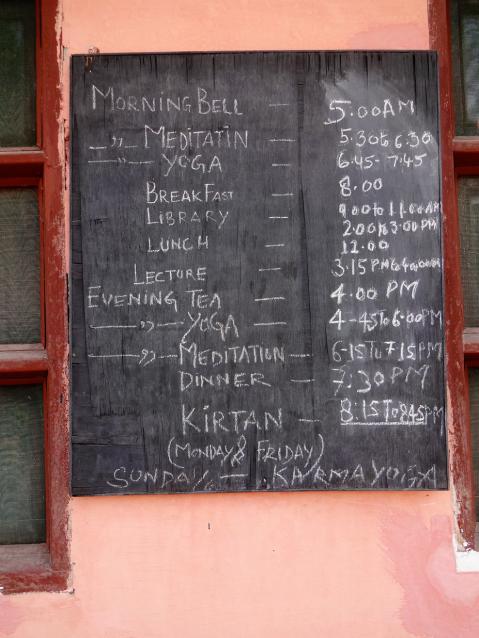 MORNING BELL — 5.00 AM
—"— MEDITATIN — 5.30 to 6.30
—"— YOGA — 6.45- 7.45
BREAKFAST — 8.00
LIBRARY — 9.00 to 11.00 AM
2.00 to 3.00 PM
LUNCH — 12.00
LECTURE — 3.15 PM to 4.00 AM
EVENING TEA — 4.00 PM
—"— YOGA — 4-45 to 6.00 PM
—"— MEDITATION — 6-15 To 7.15 PM
DINNER — 7:30 PM
KIRTAN — 8.15 To 8.45 PM
(MONDAY & FRIDAY)
SUNDAY — KARMA YOGA